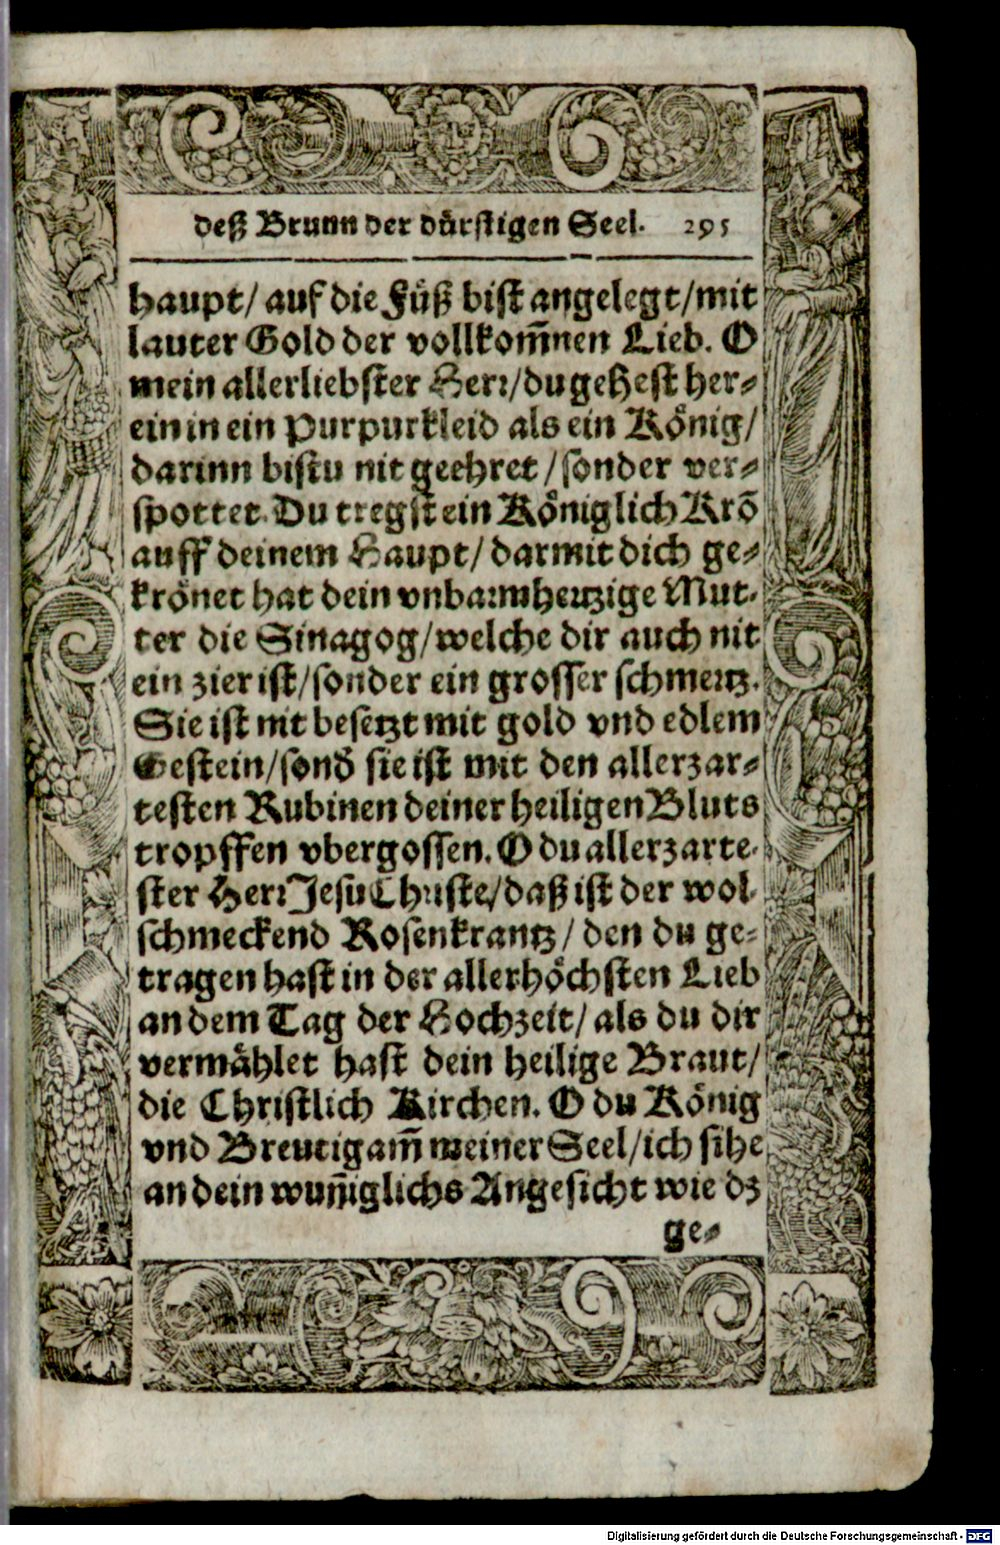 deß Brunn der dürstigen Seel. 295
haupt/ auf die Füß bist angelegt/mit
lauter Gold der vollkom̃nen Lieb. O
mein allerliebster Herr/du gehest her-
ein in ein Purpurkleid als ein König/
darinn bistu nit geehret/sonder ver-
spottet. Du tregst ein Königlich Krõ
auff deinem Haupt/ darmit dich ge-
krönet hat dein vnbarmhertzige Mut-
ter die Sinagog/welche dir auch nit
ein zier ist/sonder ein grosser schmertz.
Sie ist nit besetzt mit gold vnd edlem
Gestein/sond̃ sie ist mit den allerzar-
testen Rubinen deiner heiligen Bluts
tropffen vbergossen. O du allerzarte-
ster Herr Jesu Christe/daß ist der wol-
schmeckend Rosenkrantz/ den du ge-
tragen hast in der allerhöchsten Lieb
an dem Tag der Hochzeit/ als du dir
vermählet hast dein heilige Braut/
die Christlich Kirchen. O du König
vnd Breutigam̃ meiner Seel/ich sihe
an dein wun̄iglichs Angesicht wie dz
ge-
Digitalisierung gefördert durch die Deutsche Forschungsgemeinschaft - DFG